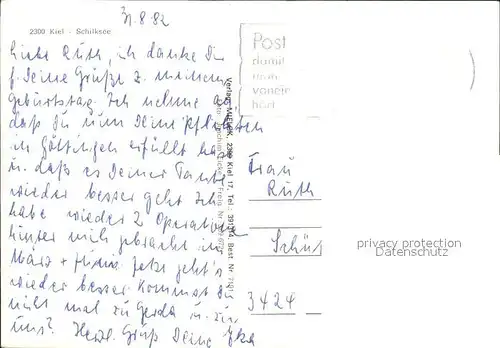 31.8.82
2300 Kiel - Schilksee
Liebe Ruth, ich danke Dir
f. Deine Grüße z. meinem
Geburtstag. Ich nehme an,
daß Du nun Deine Pflichten
in Göttingen erfüllt hast
u. daß es Deiner Tante
wieder besser geht. Ich
habe wieder 2 Operationen
hinter mich gebracht im
März + Juni. Jetzt geht's
wieder besser. Kommst Du
nicht mal zu Gerda u. zu
uns? Herzl. Gruß Deine
Verlag MUCK, 2300 Kiel 17, Tel.
Post
damit
man
vonein
hört
Frau
Ruth
Schüt
3424
privacy protection
Datenschutz